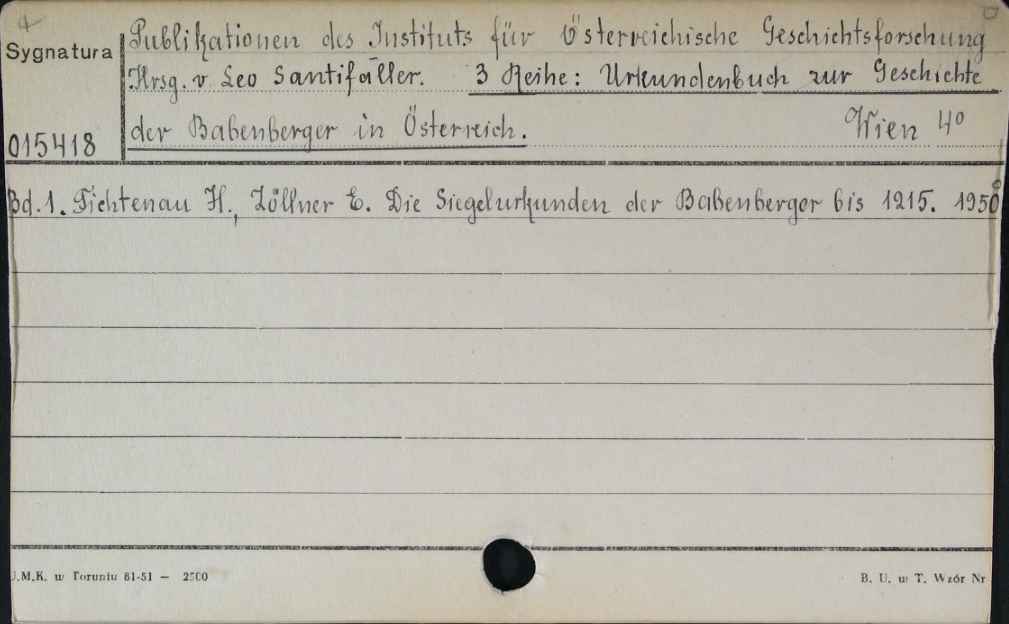 Sygnatura
Publikationen des Instituts für Österreichische Geschichtsforschung
Hrsg. v. Leo Santifäller. 3 Reihe: Urkundenbuch zur Geschichte
015418
der Babenberger in Österreich. Wien 4°
Bd.1. Fichtenau H., Zöllner E. Die Siegelurkunden der Babenberger bis 1215. 1950
U.M.K. w Toruniu 81-51 — 2500
B. U. w T. Wzór Nr